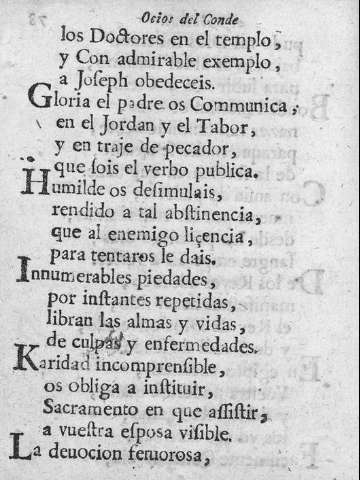 Ocios del Conde
los Doctores en el templo,
y Con admirable exemplo,
a Joſeph obedeceis.
Gloria el padre os Communica,
en el Jordan y el Tabor,
y en traje de pecador,
que ſois el verbo publica.
Humilde os deſimulais,
rendido a tal abſtinencia,
que al enemigo liçencia,
para tentaros le dais.
Innumerables piedades,
por inſtantes repetidas,
libran las almas y vidas,
de culpas y enfermedades.
Karidad incomprenſible,
os obliga a inſtituir,
Sacramento en que aſſiſtir,
a vueſtra eſpoſa viſible.
La deuocion feruoroſa,